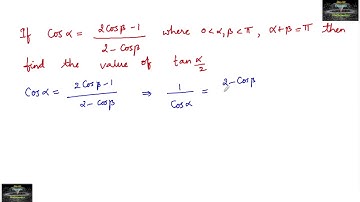 If Cosα = (2Cosβ - 1)/(2 - Cosβ) where 0 < α, β < π, α + β = π then
find the value of tan α/2
Cosα = (2Cosβ - 1)/(2 - Cosβ) ⇒ 1/Cosα = 2 - Cosβ